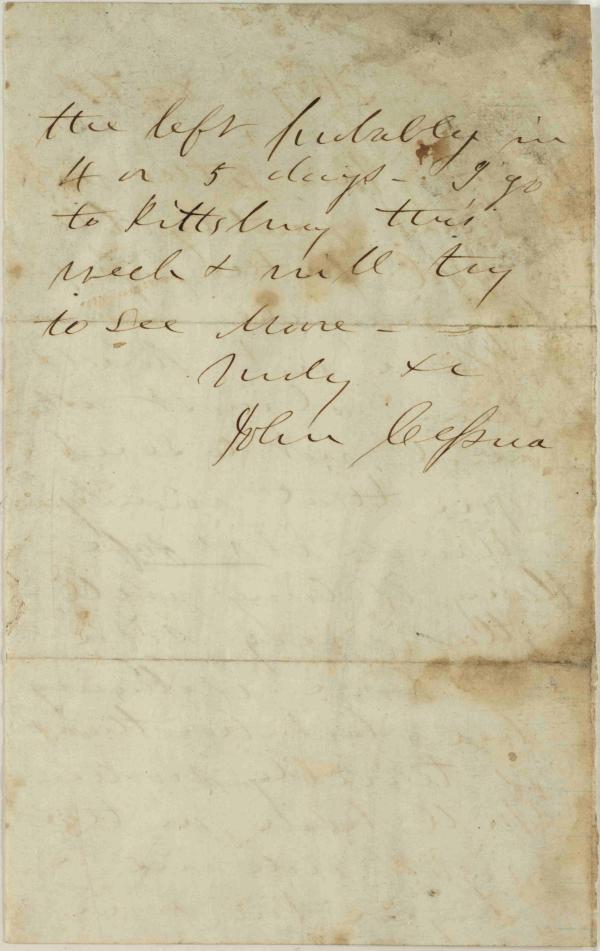 the left probably in
4 or 5 days - I go
to Pittsburg this
week & will try
to see Moore -
Truly &c
John Cessna